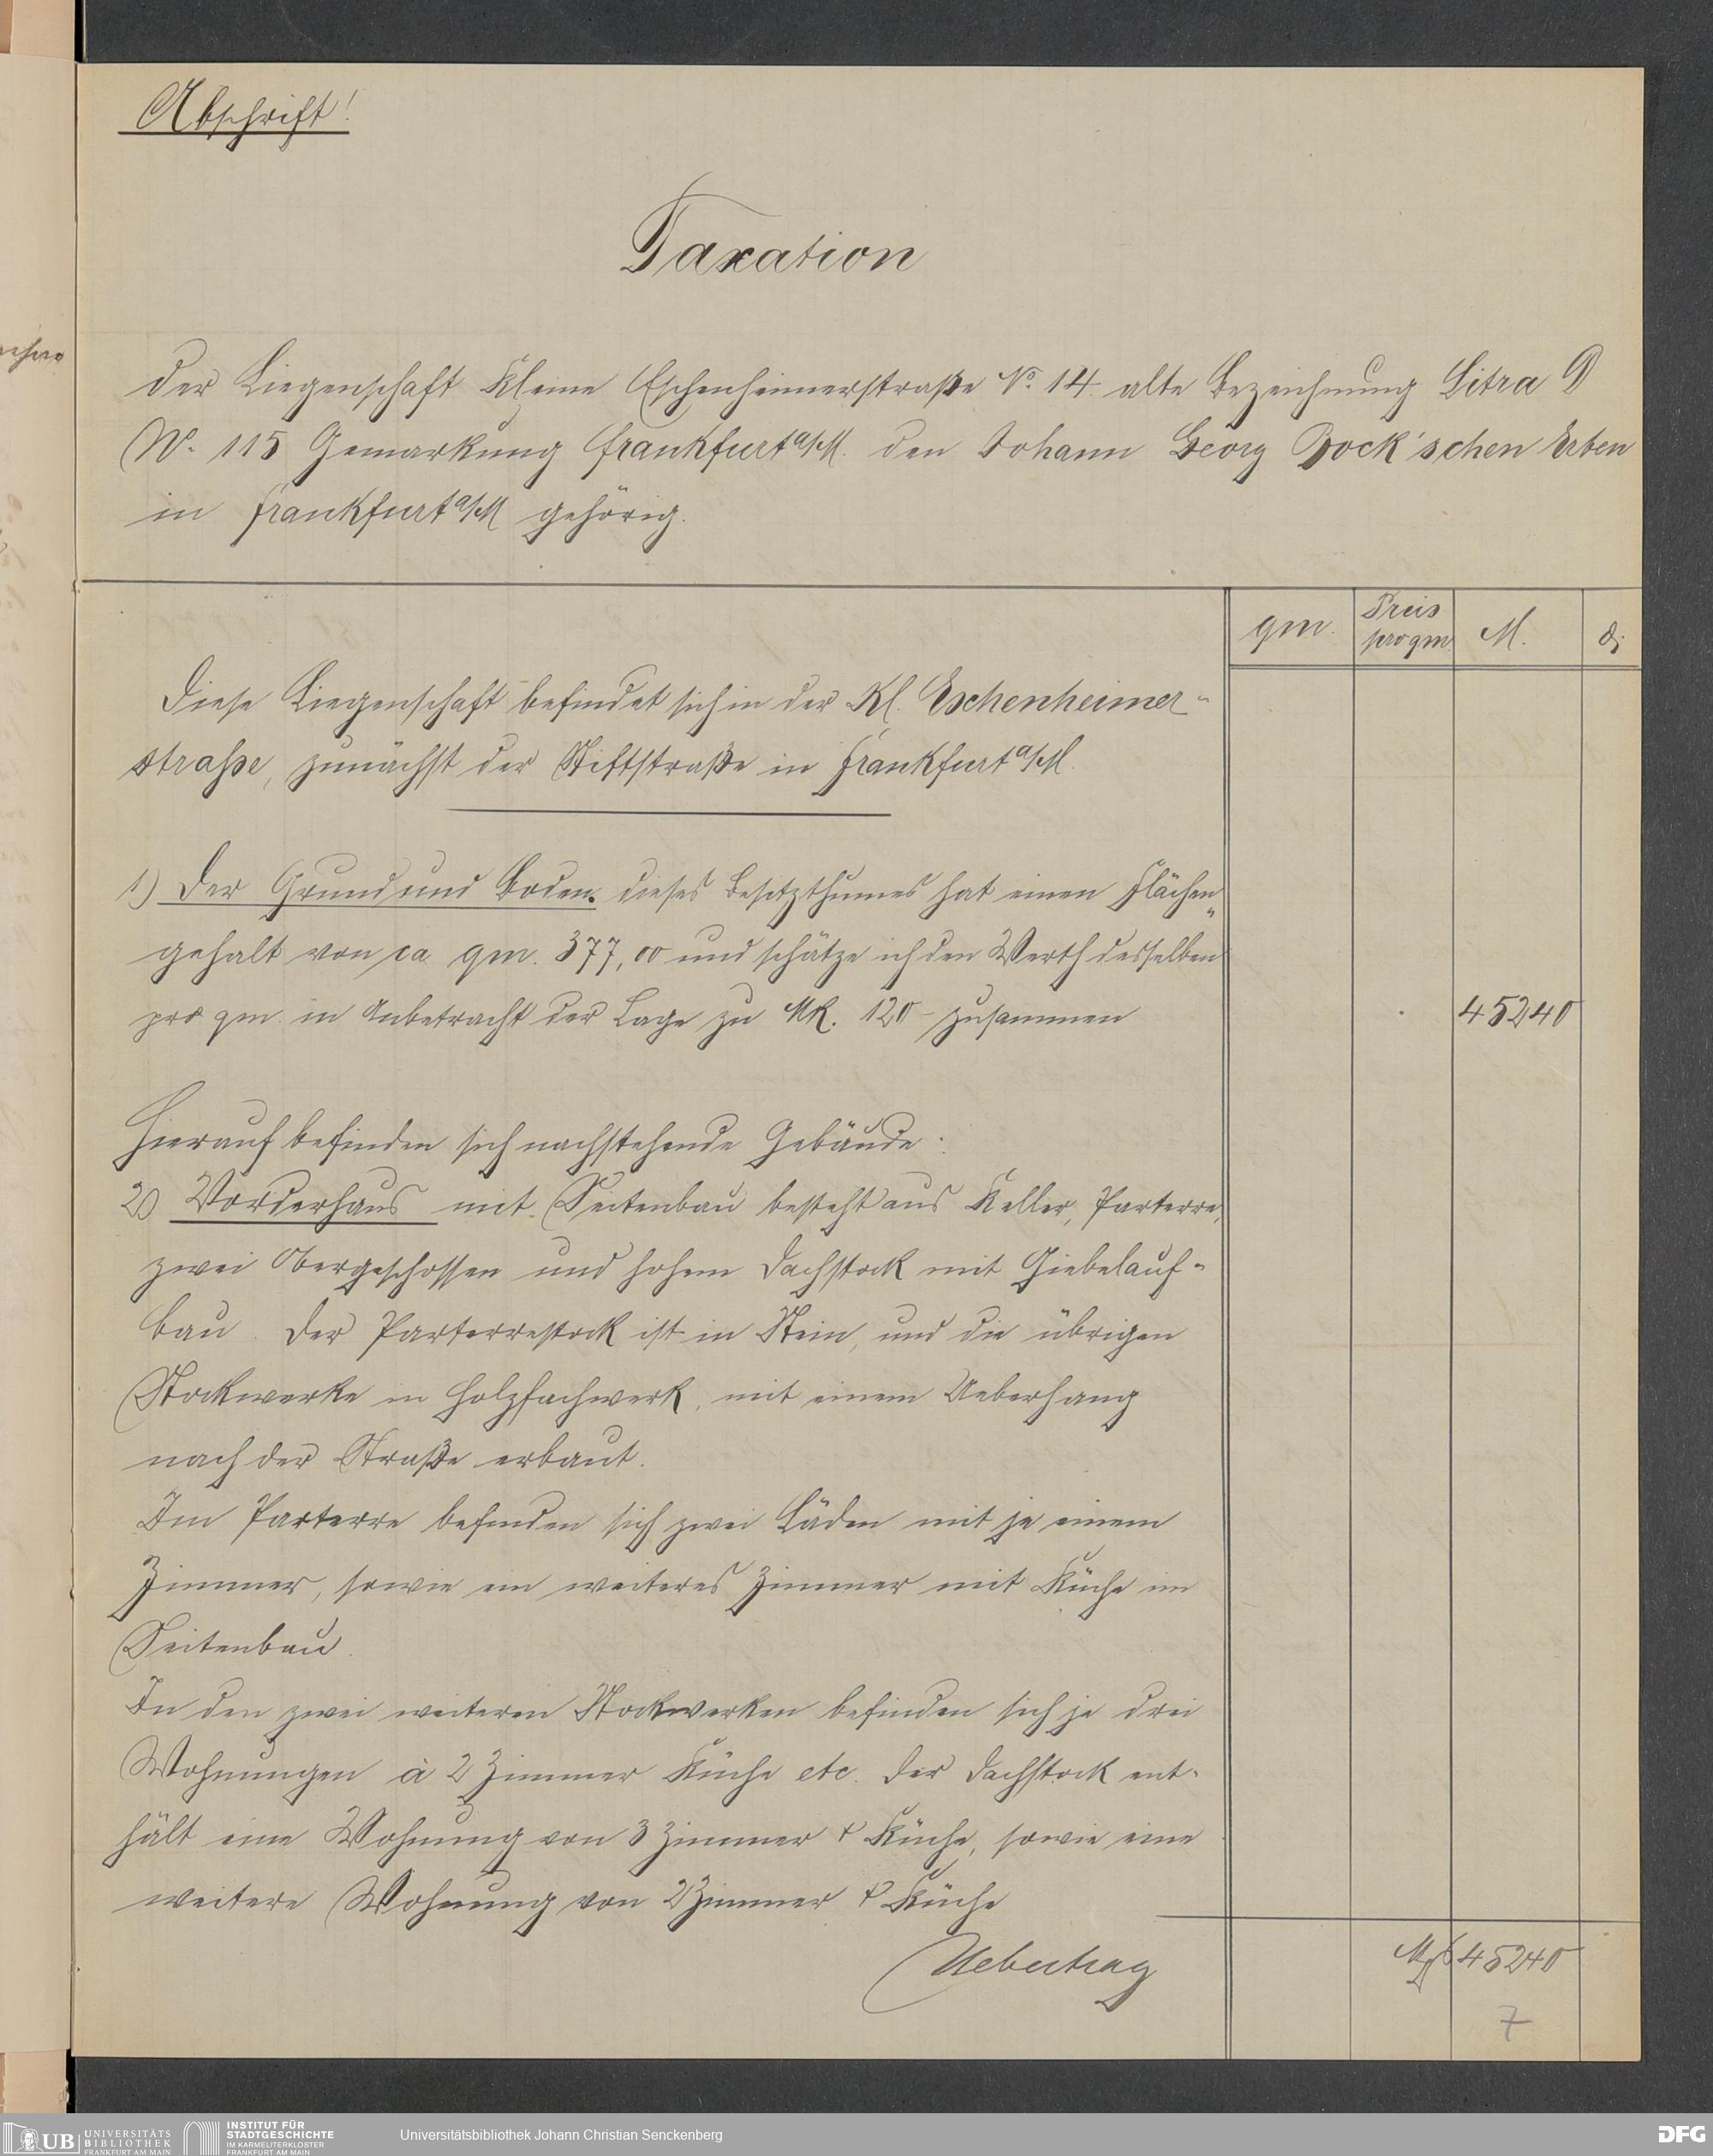 Abschrift!
Taxation
der Liegenschaft Kleine Eschenheimerstraße No. 14 alte Bezeichnung Litra D
No. 115 Gemarkung Frankfurt a/M. den Johann Georg Bock'schen Erben
in Frankfurt a/M gehörig.
qm.
Preis
pro qm
M.
Diese Liegenschaft befindet sich in der Kl. Eschenheimer-
straße, zunächst der Stiftstraße in Frankfurt a/M.
1) Der Grund und Boden. dieses Besitzthumes hat einen Flächen-
gehalt von ca qm. 377,00 und schätze ich den Werth desselben
pro qm. in Anbetracht der Lage zu Mk. 120 – zusammen 45240
Hierauf befinden sich nachstehende Gebäude:
2) Vorderhaus mit Seitenbau besteht aus Keller, Parterre,
zwei Obergeschossen und hohem Dachstock mit Giebelauf-
bau. Der Parterrestock ist in Stein, und die übrigen
Stockwerke in Holzfachwerk, mit einem Ueberhang
nach der Straße erbaut.
Im Parterre befinden sich zwei Läden mit je einem
Zimmer, sowie ein weiteres Zimmer mit Küche im
Seitenbau.
In den zwei weiteren Stockwerken befinden sich je drei
Wohnungen à 2 Zimmer Küche etc. Der Dachstock ent-
hält eine Wohnung von 3 Zimmer & Küche, sowie eine
weitere Wohnung von 2 Zimmer & Küche
Uebertrag 45240
7
UB UNIVERSITÄTS
BIBLIOTHEK
FRANKFURT AM MAIN
INSTITUT FÜR
STADTGESCHICHTE
IM KARMELITERKLOSTER
FRANKFURT AM MAIN
Universitätsbibliothek Johann Christian Senckenberg
DFG